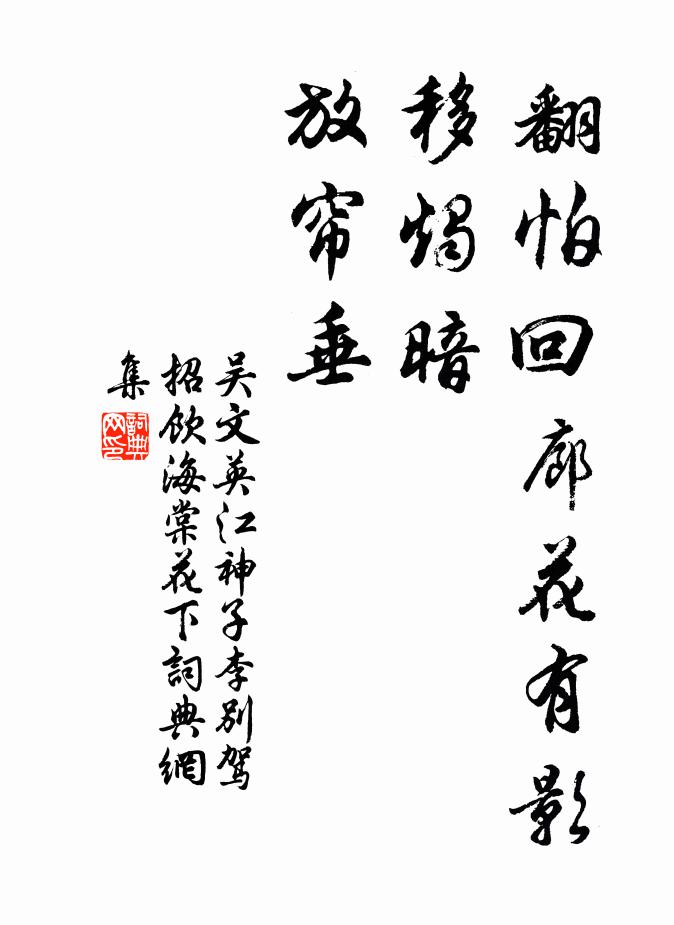 翻怕回廊花有影
移烛暗
放帘垂
吴文英江神子李别驾
招饮海棠花下詞典網
集
詞典
网印